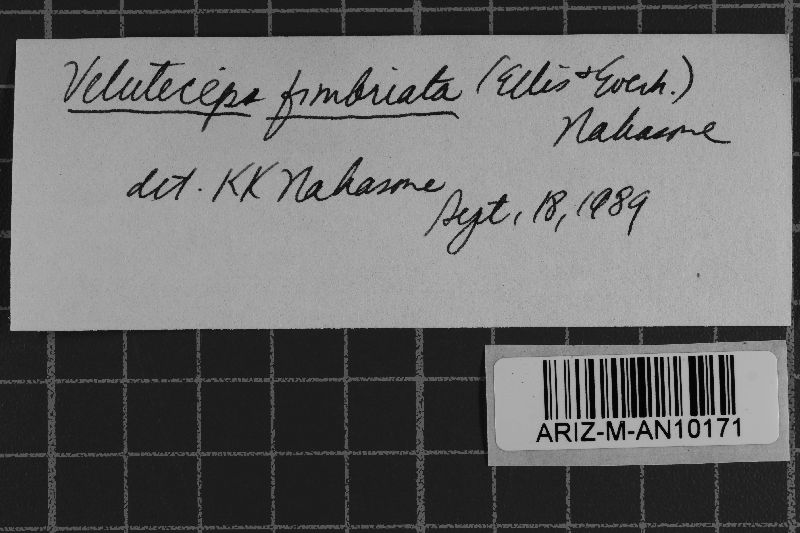 Veluteceps fimbriata (Ellis & Everh.)
Nakasone
det. KK Nakasone
Sept, 18, 1989
ARIZ-M-AN10171